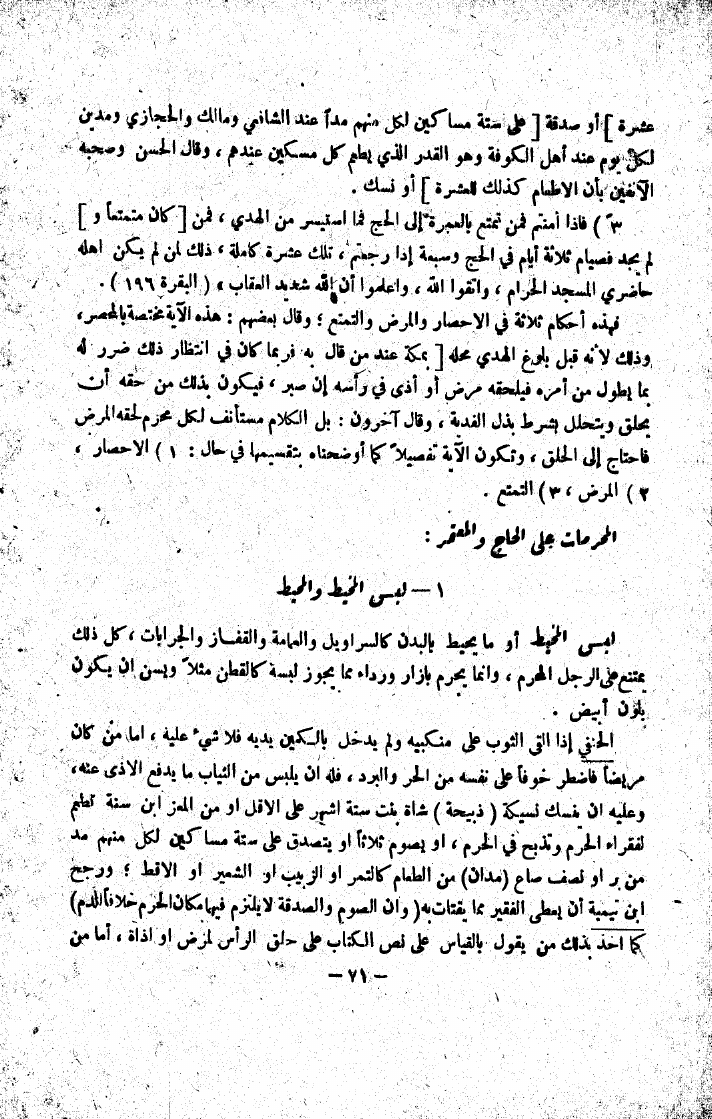 عشرة ] أو صدقة [ على ستة مساكين لكل منهم مداً عند الشافعي ومالك والحجازي ومدين
لكل يوم عند أهل الكوفة وهو القدر الذي يطعم كل مسكين عندهم ، وقال الحسن وصحبه
الآنفين بأن الاطعام كذلك للعشرة ] أو نسك .
٣ ) فاذا أمنتم فمن تمتع بالعمرة إلى الحج فما استيسر من الهدي ، فمن [ كان متمتعاً و ]
لم يجد فصيام ثلاثة أيام في الحج وسبعة إذا رجعتم ، تلك عشرة كاملة ، ذلك لمن لم يكن اهله
حاضري المسجد الحرام ، واتقوا الله ، واعلموا أن الله شديد العقاب » ( البقرة ١٩٦ ) .
فهذه أحكام ثلاثة في الاحصار والمرض والتمتع ؛ وقال بعضهم : هذه الآية مختصة بالمحصر ،
وذلك لأنه قبل بلوغ الهدي محله [ بمكة عند من قال به فربما كان في انتظار ذلك ضرر له
بما يطول من أمره فيلحقه مرض أو أذى في رأسه إن صبر ، فيكون بذلك من حقه أن
يحلق ويتحلل بشرط بذل الفدية ، وقال آخرون : بل الكلام مستأنف لكل محرم لحقه المرض
فاحتاج إلى الحلق ، وتكون الآية تفصيلاً كما أوضحناه بتقسيمها في حال : ١ ) الاحصار ،
٢ ) المرض ، ٣ ) التمتع .
المحرمات على الحاج والمعتمر :
١ – لبس المخيط والمحيط
لبس المخيط أو ما يحيط بالبدن كالسراويل والعمامة والقفاز والجرابات ، كل ذلك
يمتنع على الرجل المحرم ، وانما يحرم بازار ورداء مما يجوز لبسة كالقطن مثلاً ويسن ان يكون
بلون أبيض .
الحنفي إذا القى الثوب على منكبيه ولم يدخل بالكمين يديه فلا شيء عليه ، اما من كان
مريضاً فاضطر خوفاً على نفسه من الحر والبرد ، فله ان يلبس من الثياب ما يدفع الاذى عنه ،
وعليه ان ينسك نسيكة ( ذبيحة ) شاة بنت ستة اشهر على الاقل او من المعز ابن سنة تطعم
لفقراء الحرم وتذبح في الحرم ، او يصوم ثلاثاً او يتصدق على ستة مساكين لكل منهم مد
من بر او نصف صاع (مدان) من الطعام كالتمر او الزبيب او الشعير او الاقط ؛ ورجح
ابن تيمية أن يعطى الفقير مما يقتات به ( وان الصوم والصدقة لا يلتزم فيها مكان الحرم خلافاً للدم)
كما اخذ بذلك من يقول بالقياس على نص الكتاب على حلق الرأس لمرض او اذاة ، أما من
– ٧١ –